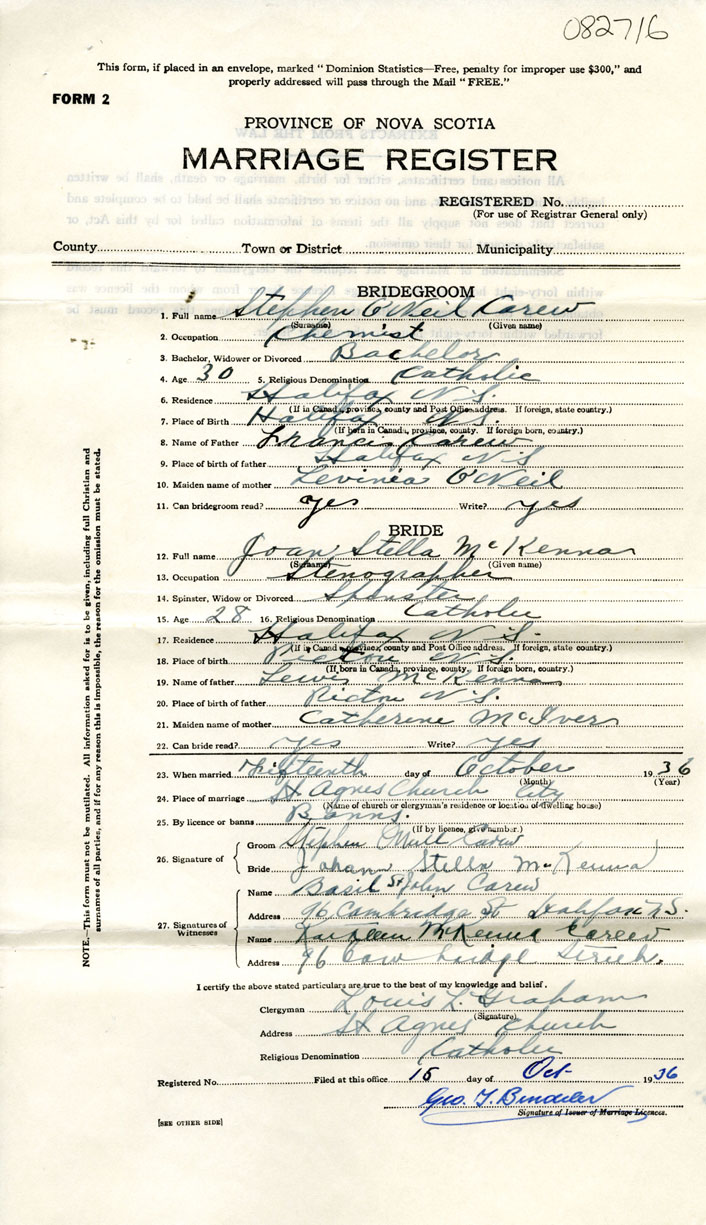 082716
This form, if placed in an envelope, marked "Dominion Statistics—Free, penalty for improper use $300," and
properly addressed will pass through the Mail "FREE."
FORM 2
PROVINCE OF NOVA SCOTIA
MARRIAGE REGISTER
REGISTERED No.
(For use of Registrar General only)
County Town or District Municipality
BRIDEGROOM
1. Full name Stephen O'Neil Carew
(Surname) (Given name)
2. Occupation Chemist
3. Bachelor, Widower or Divorced Bachelor
4. Age 30 5. Religious Denomination Catholic
6. Residence Halifax N.S.
(If in Canada, province, county and Post Office address. If foreign, state country.)
7. Place of Birth Halifax N.S.
(If born in Canada, province, county. If foreign born, country.)
8. Name of Father Francis Carew
9. Place of birth of father Halifax N S
10. Maiden name of mother Levinia O'Neil
11. Can bridegroom read? yes Write? yes
BRIDE
12. Full name Joan Stella McKenna
(Surname) (Given name)
13. Occupation Stenographer
14. Spinster, Widow or Divorced Spinster
15. Age 28 16. Religious Denomination Catholic
17. Residence Halifax N.S.
(If in Canada, province, county and Post Office address. If foreign, state country.)
18. Place of birth Pictou N.S.
(If born in Canada, province, county. If foreign born, country.)
19. Name of father Lewis McKenna
20. Place of birth of father Pictou N.S.
21. Maiden name of mother Catherine McIver
22. Can bride read? yes Write? yes
23. When married Fifteenth day of October 1936
(Month) (Year)
24. Place of marriage St Agnes Church City
(Name of church or clergyman's residence or location of dwelling house)
25. By licence or banns Banns.
(If by licence, give number.)
26. Signature of
Groom Stephen O'Neill Carew
Bride Johann Stella McKenna
27. Signatures of Witnesses
Name Basil St John Carew
Address 96 Cambridge St Halifax N.S.
Name Kathleen McKenna Carew
Address 96 Cambridge Street.
I certify the above stated particulars are true to the best of my knowledge and belief.
Clergyman Louis L. Graham
(Signature)
Address St Agnes Church
Religious Denomination Catholic
Registered No. Filed at this office 15 day of Oct 1936
Geo. T.
Signature of Issuer of Marriage Licences.
[SEE OTHER SIDE]
NOTE.—This form must not be mutilated. All information asked for is to be given, including full Christian and
surnames of all parties, and if for any reason this is impossible, the reason for the omission must be stated.